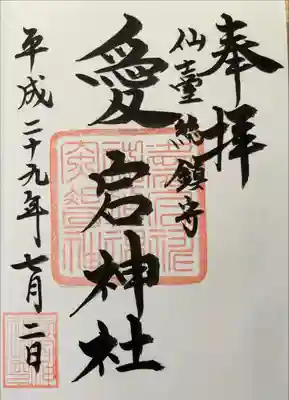 奉拝
仙臺総鎮守
愛宕神社
平成二十九年七月二日